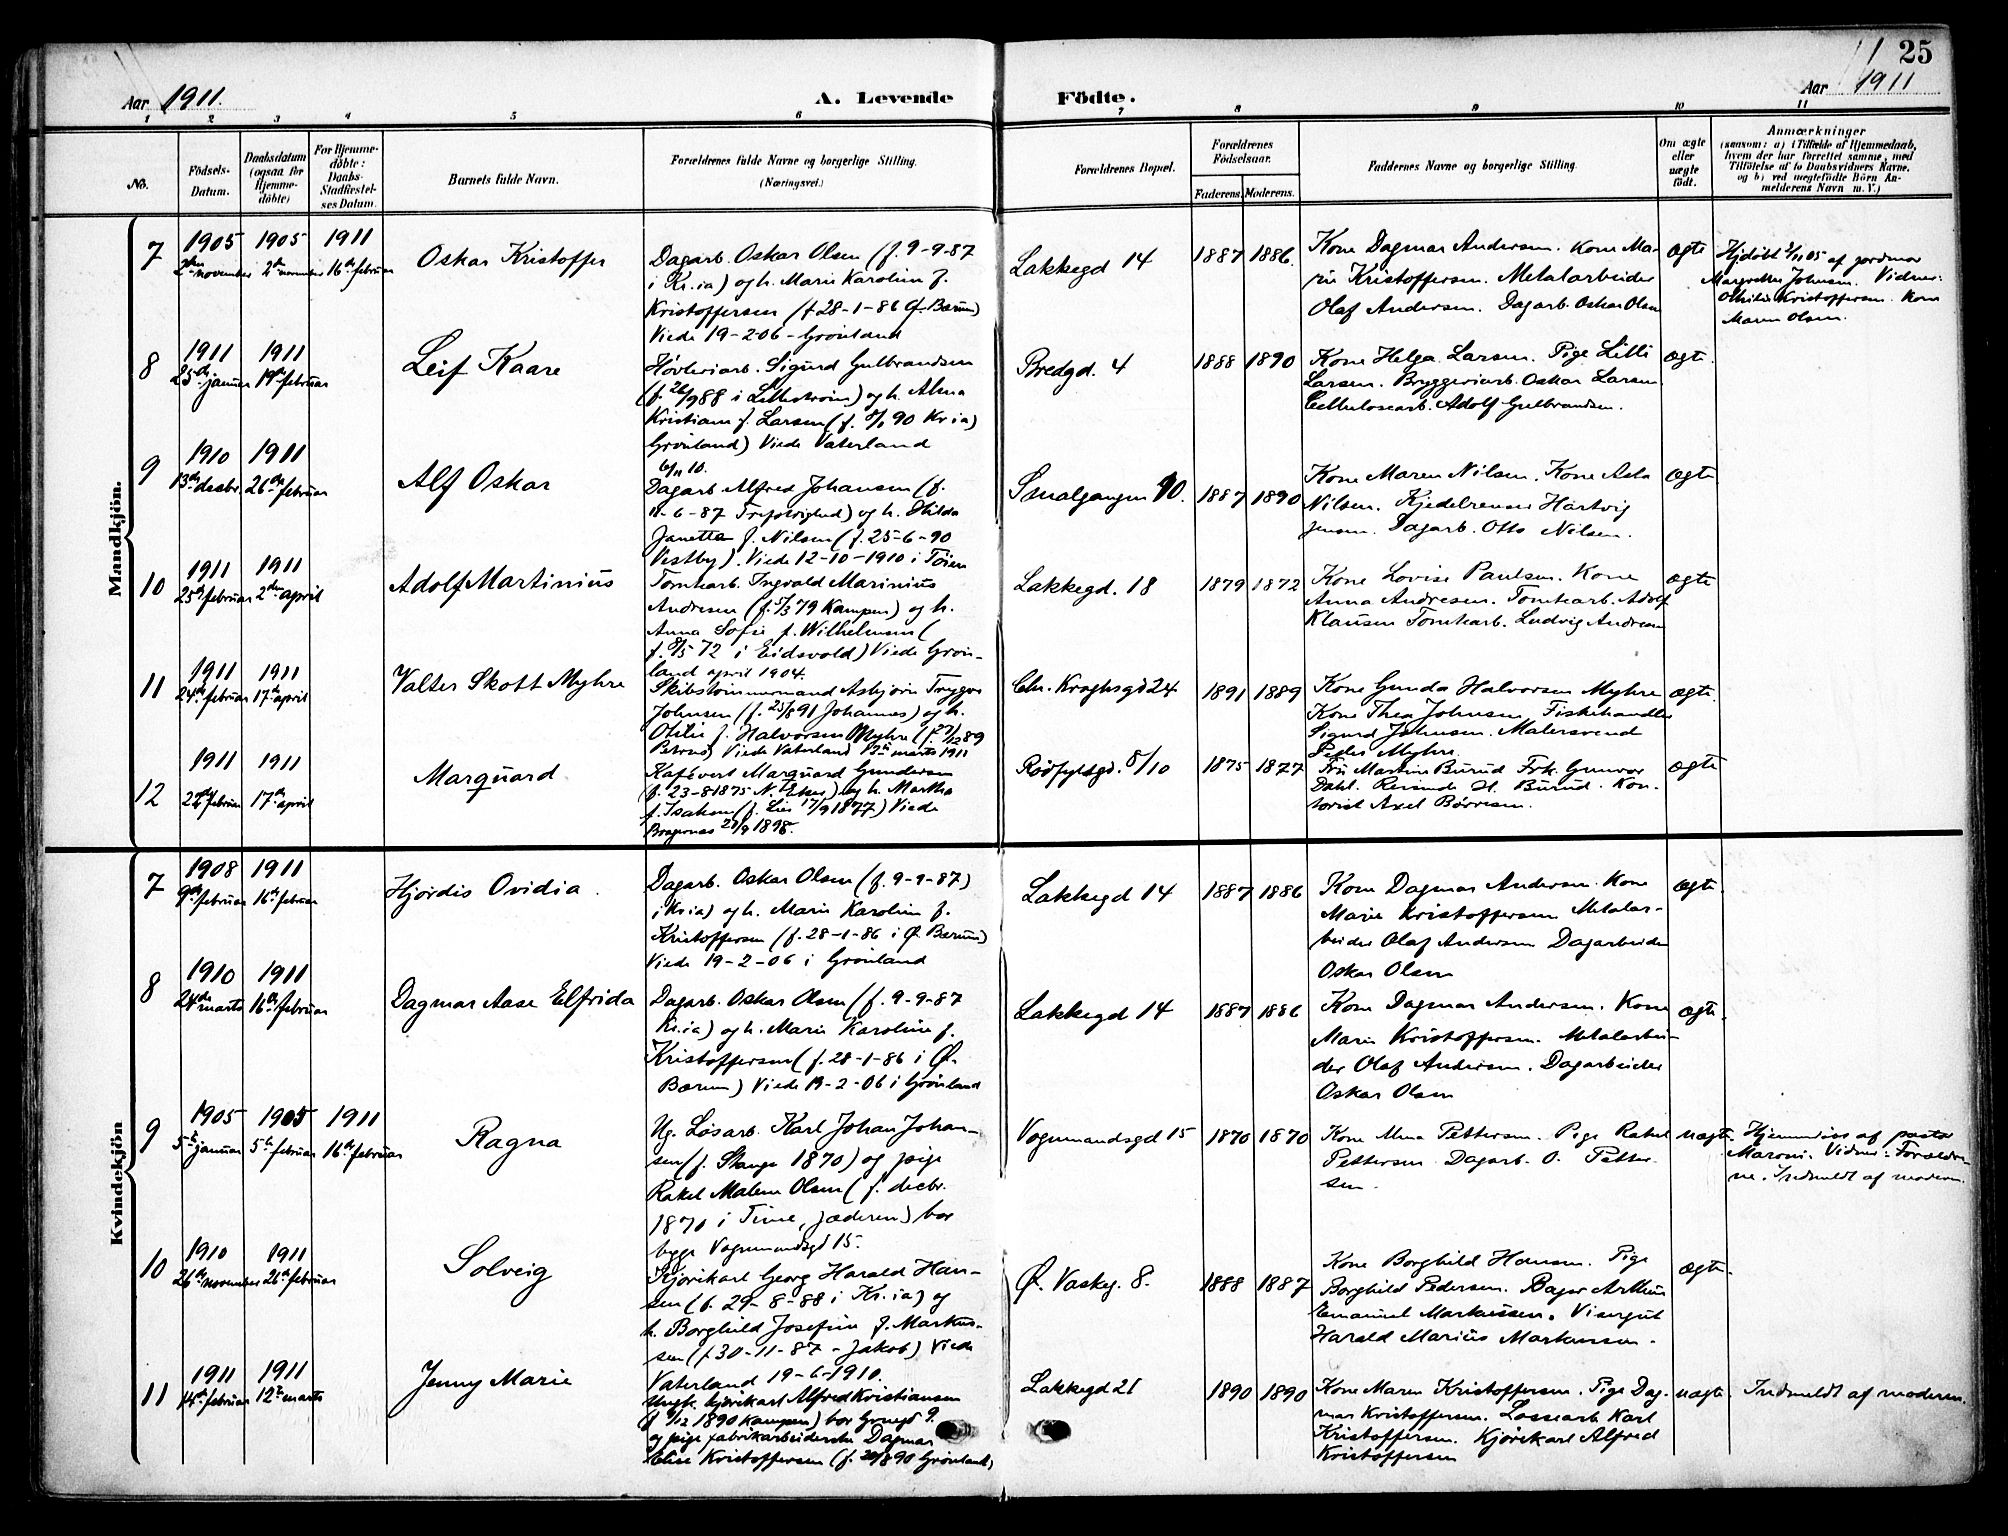 25
Aar 1911.
A. Levende Födte.
Aar 1911
1 2 3 4 5 6 7 8 9 10 11
No.
Födsels-Datum.
Daabsdatum (ogsaa for Hjemme-döbte)
For Hjemme-döbte: Daabs-Stadfæstel-ses Datum.
Barnets fulde Navn.
Forældrenes fulde Navne og borgerlige Stilling. (Næringsvei.)
Forældrenes Bopæl.
Forældrenes Födselsaar.
Faderens. Moderens.
Faddernes Navne og borgerlige Stilling.
Om ægte eller uægte födt.
Anmærkninger
(saasom: a) i Tilfælde af Hjemmedaab,
hvem der har forrettet samme, med
Tilföielse af to Daabsvidners Navne,
og b) ved uægtefödte Börn An-
melderens Navn m. V.)
Mandkjön.
7
1905 2den november
1905 2den november
1911 16de februar
Oskar Kristoffer
Dagarb. Oskar Olsen (f. 9-9-87
i Kr.ia) og h. Marie Karoline f.
Kristoffersen (f 28-1-86 Ø. Bærum)
Viede 19-2-06 - Grønland
Lakkegd 14
1887 1886.
Kone Dagmar Andersen. Kone Ma-
rie Kristoffersen. Metalarbeider
Olaf Andersen. Dagarb. Oskar Olsen
ægte
Hjdøbt 2/11 05 af jordmor
Margrethe Johnsen. Vidner:
Othilie Kristoffersen. Kone
Maren Olsen.
8
1911 25de januar
1911 19de februar
Leif Kaare
Høvleriarb. Sigurd Gulbrandsen
(f. 26/9 88 i Lillestrøm) og h. Alma
Kristiane f. Larsen (f. 8/1 90 Kr.ia)
Grønland) Viede Vaterland
6/11 10.
Bredgd. 4
1888 1890
Kone Helga Larsen. Pige Lilli
Larsen. Bryggeriarb. Oskar Larsen
Cellulosearb. Adolf Gulbrandsen.
ægte.
9
1910 13de decbr.
1911 26de februar
Alf Oskar
Dagarb Alfred Johansen (f.
11-6-87 Trefoldighed) og h. Hilda
Janette f. Nilsen (f. 25-6-90
Vestby). Viede 12-10-1910 i Tøien
Smalgangen 10.
1887 1890
Kone Maren Nilsen. Kone Asta
Nilsen. Kjedelrenser Hartvig
Jensen. Dagarb. Otto Nilsen.
ægte
10
1911 25de februar
1911 2den april
Adolf Martinius
Tomtearb. Ingvald Marinius
Andresen (f. 5/3 79 Kampen) og h.
Anna Sofie f. Wilhelmsen (
f. 8/5 72 i Eidsvold) Viede Grøn-
land april 1904.
Lakkegd. 18
1879 1872
Kone Lovise Paulsen. Kone
Anna Andresen. Tomtearb. Adolf
Klausen Tomtearb. Ludvig Andresen
ægte
11
1911 24de februar
1911 17de april
Valter Skott Myhre
Skibstømmermand Asbjørn Trygve
Johnsen (f. 25/8 91 Johannes) og h.
Otilie f. Halvorsen Myhre (f. 27/12 89
Petrus) Viede Vaterland 13de marts 1911
Chr. Kroghsgd 24
1891 1889
Kone Gunda Halvorsen Myhre
Kone Thea Johnsen. Fiskehandler
Sigurd Johnsen. Malersvend
Peder Myhre.
ægte.
12
1911 22de februar
1911 17de april
Marquard
Kafévert Marquard Gundersen
(f. 23-8 1875 N. Eker) og h. Martha
f. Isaksen (f. Lier 17/9 1877) Viede
Bragernæs 27/9 1898.
Rødfyldgd. 8/10
1875 1877
Fru Martine Burud Frk. Gunvor
Dahl. Reisende H. Burud. Kon-
torist Axel Børresen.
ægte
Kvindekjön
7
1908 9de februar
1911 16de februar
Hjørdis Ovidia.
Dagarb. Oskar Olsen (f. 9-9-87)
i Kr.ia) og h. Marie Karoline f.
Kristoffersen (f. 28-1-86 i Ø. Bærum)
Viede 19-2-06 i Grønland
Lakkegd 14
1887 1886
Kone Dagmar Andersen. Kone
Marie Kristoffersen Metalar-
beider Olaf Andersen Dagarbeider
Oskar Olsen
ægte.
8
1910 24de marts
1911 16de februar
Dagmar Aase Elfrida
Dagarb. Oskar Olsen (f. 9-9-87
Kr.ia) og h. Marie Karoline f.
Kristoffersen (f. 28-1-86 i Ø.
Bærum) Viede 19-2-06 i Grønland
Lakkegd 14
1887 1886
Kone Dagmar Andersen. Kone
Marie Kristoffersen. Metalarbei-
der Olaf Andersen. Dagarbeider
Oskar Olsen
ægte.
9
1905 5te januar
1905 5te februar
1911 16de februar
Ragna
Ug. Løsarb. Karl Johan Johan-
sen (f. Stange 1870) og pige
Rakel Malene Olsen (f. decbr.
1870 i Time, Jæderen) bor
begge Vognmandsgd 15.
Vognmandsgd 15
1870 1870
Kone Alma Pettersen. Pige Rakel
Pettersen. Dagarb. O. Petter-
sen.
uægte.
Hjemmedøs af pastor
Maroni. Vidner: Forældre-
ne. Indmeldt af moderen.
10
1910 26de november
1911 26de februar
Solveig
Kjørekarl Georg Harald Han-
sen (f. 29-8-88 i Kr.ia) og
h. Borghild Josefine f. Markus-
sen (f 30-11-87 - Jakob) Viede
Vaterland 19-6-1910.
Ø. Vaskeg. 8.
1888 1887
Kone Borghild Hansen. Pige
Borghild Pedersen. Bager Arthur
Emanuel Markussen. Visergut
Harald Marius Markussen.
ægte.
11
1911 14de februar
1911 12te marts
Jenny Marie
Ungk. kjørekarl Alfred Kristiansen
(f 9/12 1890 Kampen) bor Grøngd 9.
og pige fabrikarbeiderske Dagmar
Elise Kristoffersen (f. 20/8 90 Grønland)
Lakkegd 21
1890 1890
Kone Maren Kristoffersen. Pige Dag-
mar Kristoffersen. Lossearb Karl
Kristoffersen. Kjørekarl Alfred
Kristoffersen
uægte.
Indmeldt af moderen.